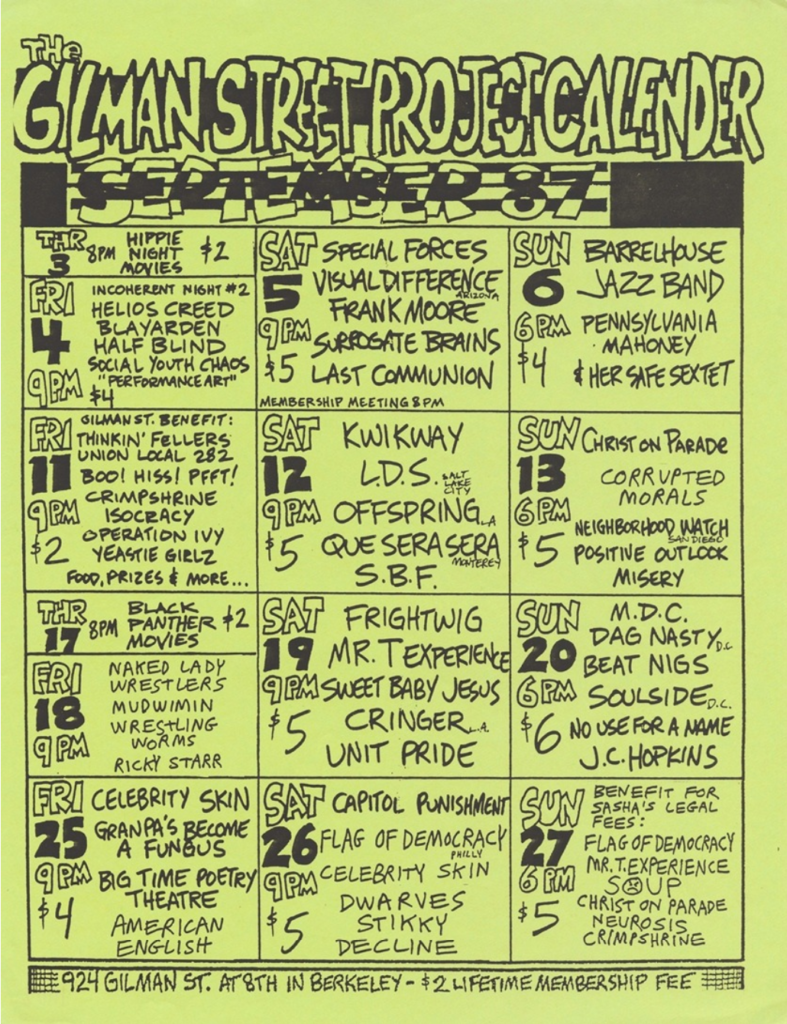 THE
GILMAN STREET PROJECT CALENDER
SEPTEMBER 87
THR 3
8PM
HIPPIE
NIGHT
MOVIES
$2
FRI 4
9PM
INCOHERENT NIGHT #2
HELIOS CREED
BLAYARDEN
HALF BLIND
SOCIAL YOUTH CHAOS
"PERFORMANCE ART"
$4
SAT 5
9PM
$5
SPECIAL FORCES
VISUAL DIFFERENCE
ARIZONA
FRANK MOORE
SURROGATE BRAINS
LAST COMMUNION
MEMBERSHIP MEETING 8PM
SUN 6
6PM
$4
BARRELHOUSE
JAZZ BAND
PENNSYLVANIA
MAHONEY
& HER SAFE SEXTET
FRI 11
9PM
$2
GILMAN ST. BENEFIT:
THINKIN' FELLERS
UNION LOCAL 282
BOO! HISS! PFFT!
CRIMPSHRINE
ISOCRACY
OPERATION IVY
YEASTIE GIRLZ
FOOD, PRIZES & MORE...
SAT 12
9PM
$5
KWIKWAY
L.D.S. SALT LAKE CITY
OFFSPRING L.A.
QUE SERA SERA
MONTEREY
S.B.F.
SUN 13
6PM
$5
CHRIST ON PARADE
CORRUPTED
MORALS
NEIGHBORHOOD WATCH
SAN DIEGO
POSITIVE OUTLOOK
MISERY
THR 17
8PM
BLACK
PANTHER
MOVIES
$2
FRI 18
9PM
NAKED LADY
WRESTLERS
MUDWIMIN
WRESTLING
WORMS
RICKY STARR
SAT 19
9PM
$5
FRIGHTWIG
MR. T EXPERIENCE
SWEET BABY JESUS
CRINGER L.A.
UNIT PRIDE
SUN 20
6PM
$6
M.D.C.
DAG NASTY D.C.
BEAT NIGS
SOULSIDE D.C.
NO USE FOR A NAME
J.C. HOPKINS
FRI 25
9PM
$4
CELEBRITY SKIN
GRANPA'S BECOME
A FUNGUS
BIG TIME POETRY
THEATRE
AMERICAN
ENGLISH
SAT 26
9PM
$5
CAPITOL PUNISHMENT
FLAG OF DEMOCRACY
PHILLY
CELEBRITY SKIN
DWARVES
STIKKY
DECLINE
SUN 27
6PM
$5
BENEFIT FOR
SASHA'S LEGAL
FEES:
FLAG OF DEMOCRACY
MR. T. EXPERIENCE
SOUP
CHRIST ON PARADE
NEUROSIS
CRIMPSHRINE
924 GILMAN ST. AT 8TH IN BERKELEY - $2 LIFETIME MEMBERSHIP FEE